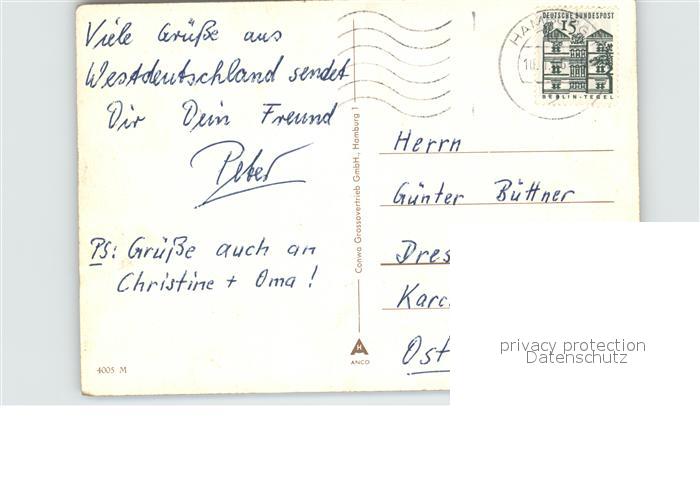 Viele Grüße aus
Westdeutschland sendet
Dir Dein Freund
Peter
PS: Grüße auch an
Christine + Oma!
4005 M
Conwa Grossovertrieb GmbH., Hamburg 1
ANCO
DEUTSCHE BUNDESPOST
15
BERLIN-TEGEL
HAM
10.
Herrn
Günter Büttner
Dres
Karc
Ost
privacy protection
Datenschutz